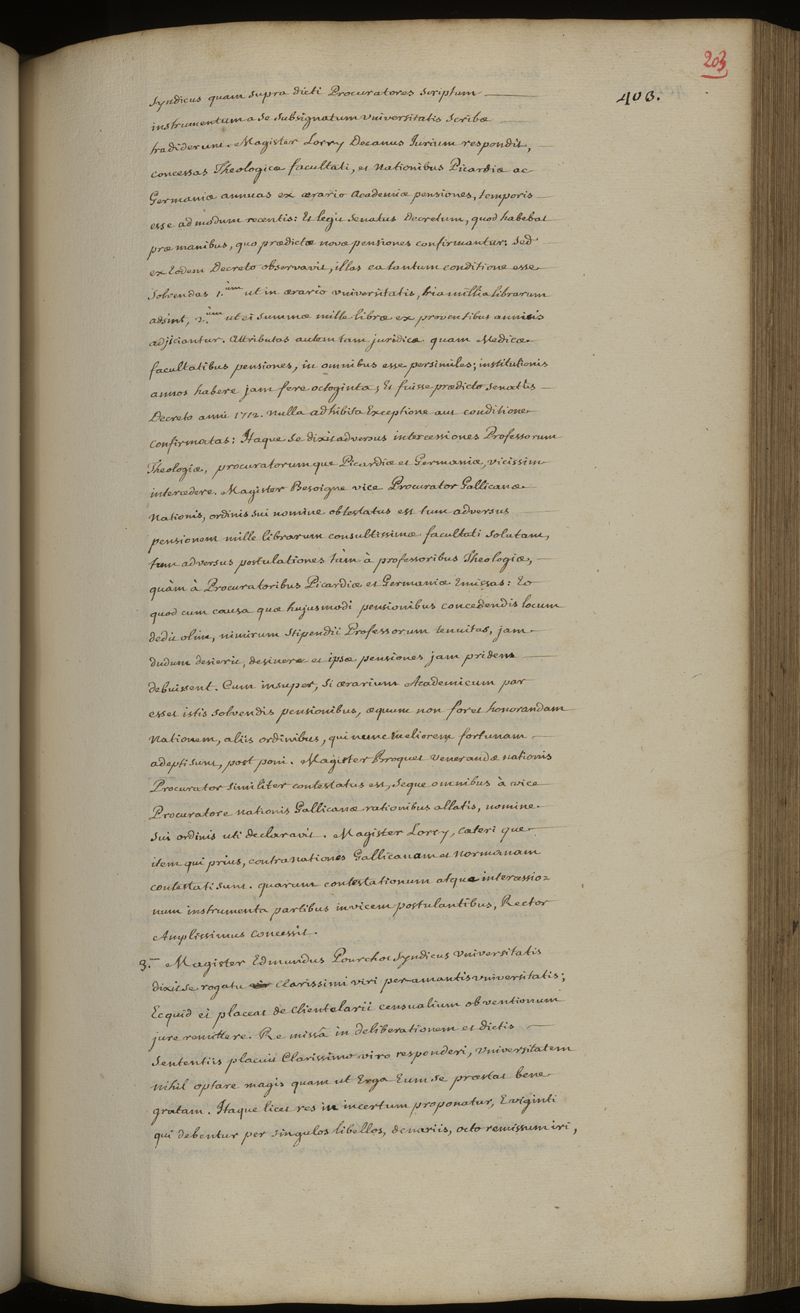 203
403.
Syndicus quam supra dicti Procuratores scriptum
instrumentum a se subsignatum universitatis scribæ
tradiderunt. Magister Lorry Decanus Jurium respondit,
concessas Theologicæ facultati, et Nationibus Picardiæ ac
Germaniæ annuas ex ærario Academiæ pensiones, temporis
esse ad modum recentis: Et legit senatus Decretum, quod habebat
præ manibus, quo prædictæ novæ pensiones confirmantur; sed
ex Eodem Decreto observavit, illas ea tantum conditione esse
solvendas 1.um ut in ærario universitatis, tria millia librarum
adsint, 2.um ut ei summæ mille libræ ex proventibus annuis
adjiciantur. Attributas autem tam juridicæ quam Medicæ
facultatibus pensiones, in omnibus esse persimiles; institutionis
annos habere jam fere octoginta; Et fuisse prædicto senatûs
Decreto anni 1712. nulla adhibita Exceptione aut conditione
confirmatas: Itaque se dixit adversus intercessiones Professorum
Theologiæ, procuratorumque Picardiæ et Germaniæ, vicissim
intercedere. Magister Besoigne vice Procurator Gallicanæ
Nationis, ordinis sui nomine obtestatus est tum adversus
pensionem mille librarum consultissimæ facultati solutam,
tum adversus postulationes tàm à professoribus Theologiæ,
quàm à Procuratoribus Picardiæ et Germaniæ Emissas: Eo
quod cum causa quæ hujusmodi pensionibus concedendis locum
dedit olim, nimirum stipendii Professorum tenuitas, jam
dudum desierit, desinere et ipsæ pensiones jam pridem
debuissent. Cum insuper, si ærarium Academicum par
esset istis solvendis pensionibus, æquum non foret honorandam
Nationem, aliis ordinibus, qui nunc meliorem fortunam
adepti sunt, post poni. Magister Broquet Venerandæ nationis
Procurator similiter contestatus est, seque omnibus à vice
Procuratore nationis Gallicanæ rationibus allatis, nomine
sui ordinis uti declaravit. Magister Lorry, cæteri que
item qui prius, contra nationes Gallicanam et normanam
contestati sunt. quarum contestationum atque intercessio=
num instrumenta partibus invicem postulantibus, Rector
Amplissimus concessit.
3.um Magister Edmundus Pourchot syndicus universitatis
dixit se rogatu clarissimi viri per-amantis universitatis;
Ecquid ei placeat de clientelarii censualium obventionum
jure remittere. Re missâ in deliberationem et dictis
sententiis placuit Clarissimo viro responderi, universitatem
nihil optare magis quam ut Erga Eum se præstat bene
gratam. Itaque licet res in incertum proponatur, E viginti
qui debentur per singulos libellos, denariis, octo remissum iri,